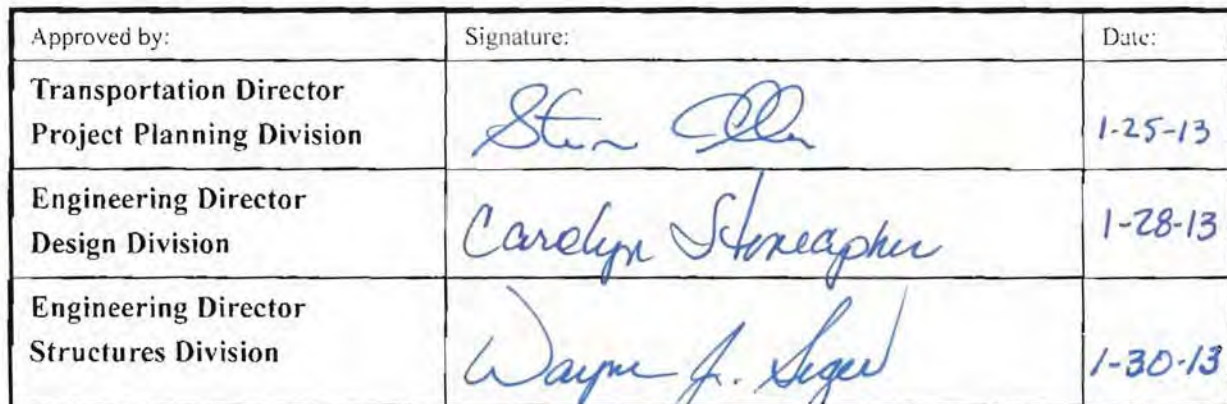 Approved by: Signature: Date:
Transportation Director
Project Planning Division
1-25-13
Engineering Director
Design Division
Carolyn Stonecipher 1-28-13
Engineering Director
Structures Division
Wayne J. Seger 1-30-13